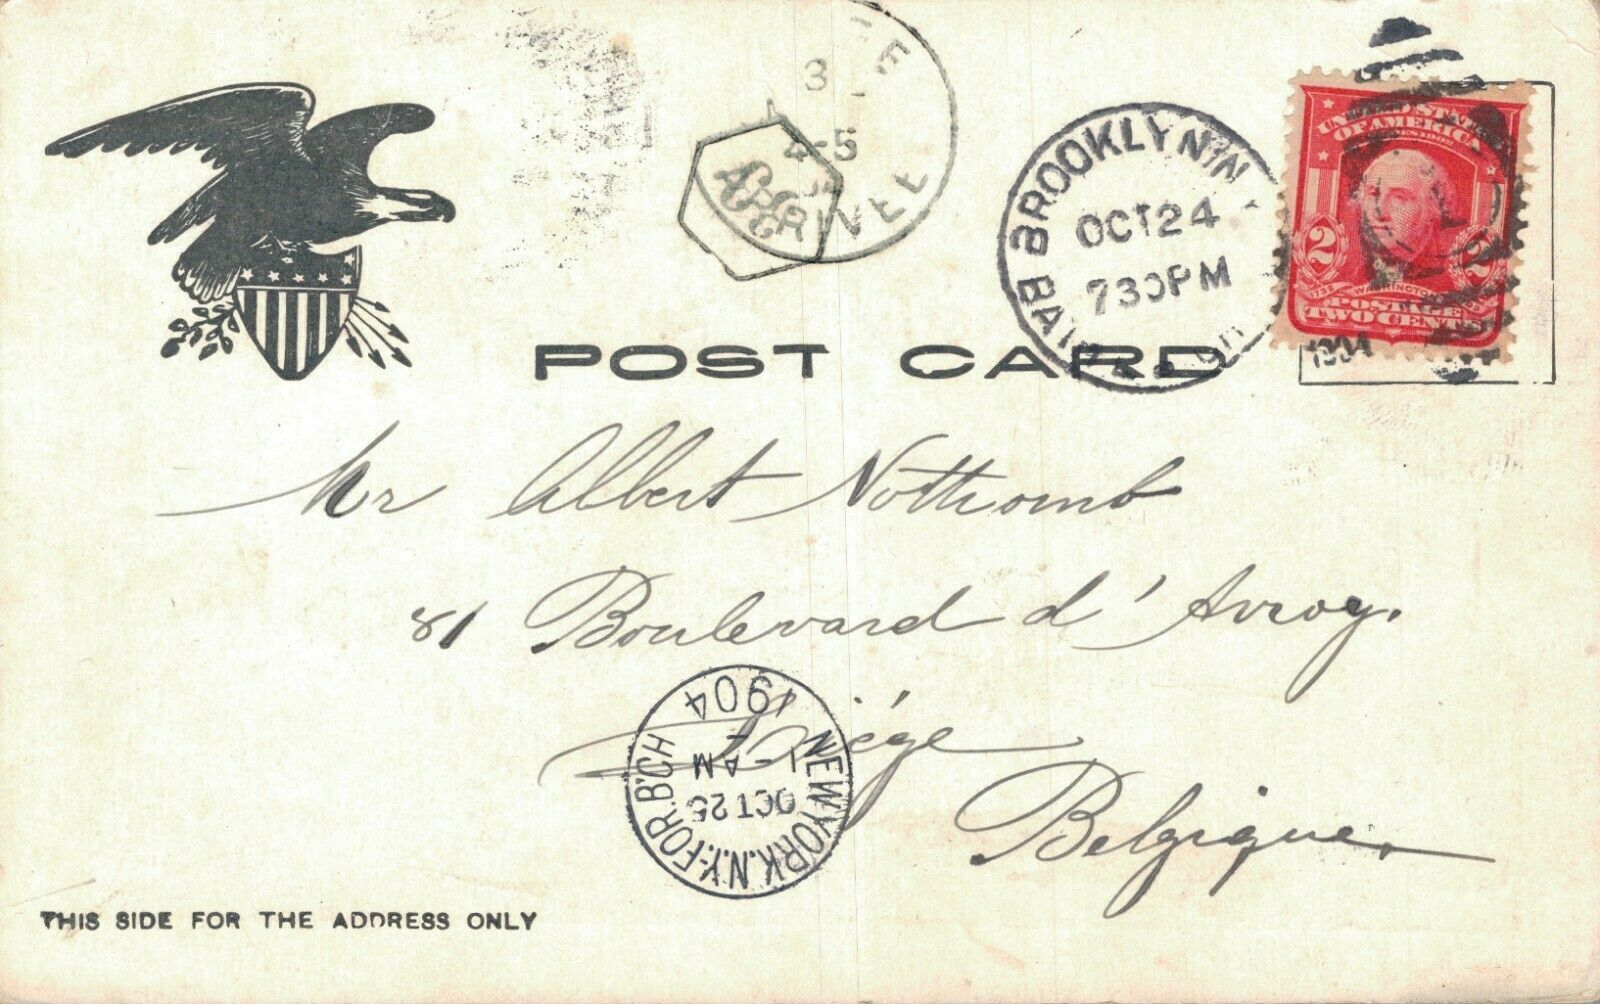 3
4-5
ARRIVÉE
BROOKLYN, N.Y.
OCT 24
7 30 PM
UNITED STATES
OF AMERICA
SERIES 1902
2 2
1732 WASHINGTON
POSTAGE
TWO CENTS
1904
POST CARD
Mr Albert Nothomb
81 Boulevard d'Avroy.
Liége
Belgique.
NEW YORK, N.Y.-FOR. B'CH
OCT 25
1-AM
1904
THIS SIDE FOR THE ADDRESS ONLY